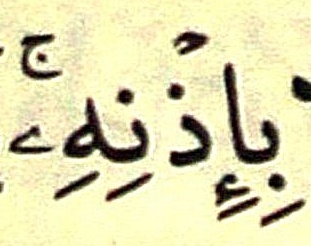 بِإِذْنِهِۦ ۚ